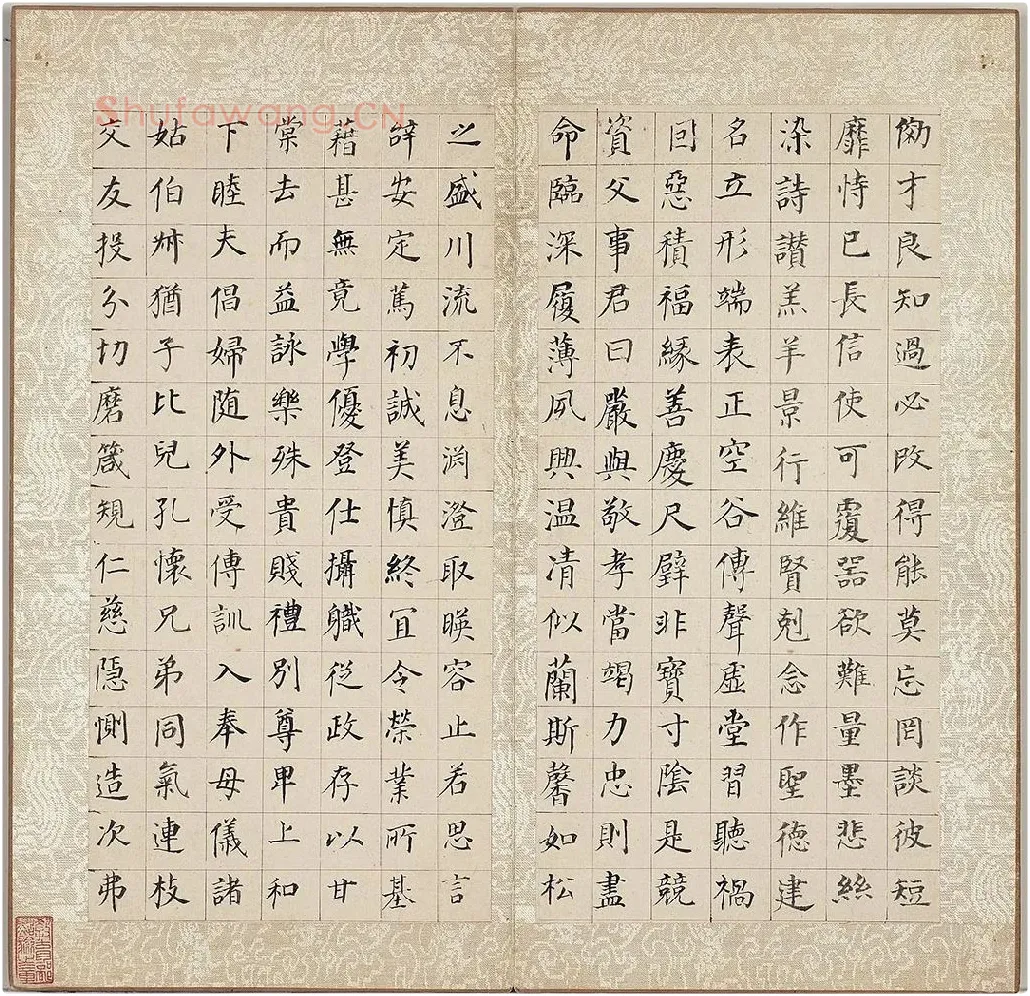 効才良知過必改得能莫忘罔談彼短
靡恃己長信使可覆器欲難量墨悲絲
染詩讃羔羊景行維賢剋念作聖德建
名立形端表正空谷傳聲虛堂習聽禍
因惡積福緣善慶尺璧非寶寸陰是競
資父事君曰嚴與敬孝當竭力忠則盡
命臨深履薄夙興温清似蘭斯馨如松
之盛川流不息渊澄取暎容止若思言
辞安定篤初誠美慎終宜令榮業所基
藉甚無竟學優登仕攝職從政存以甘
棠去而益詠樂殊貴賤禮別尊卑上和
下睦夫倡婦随外受傅訓入奉母儀諸
姑伯叔猶子比兒孔懷兄弟同氣連枝
交友投分切磨箴規仁慈隱惻造次弗
Shufawang.CN